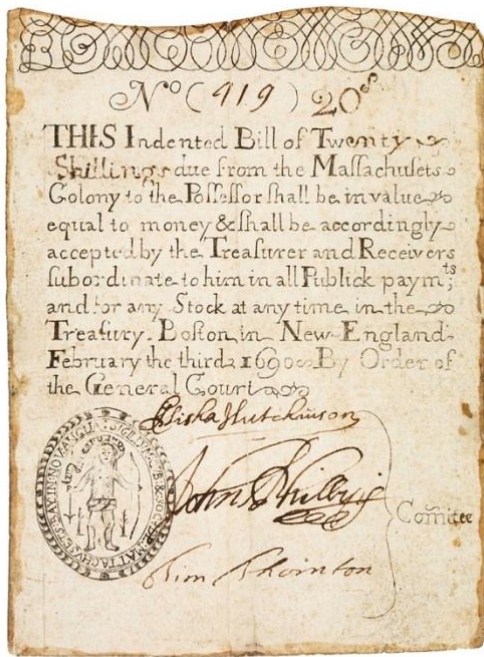 No (919) 20s
THIS Indented Bill of Twenty
Shillings due from the Maſſachuſets
Colony to the Poſſeſſor ſhall be in value
equal to money & ſhall be accordingly
accepted by the Treaſurer and Receivers
ſubordinate to him in all Publick paymts;
and for any Stock at any time in the
Treaſury. Boſton in New-England
February the third 1690 By Order of
the General Court
Elisha Hutchinson
John Phillips
Tim Thornton
Comitee